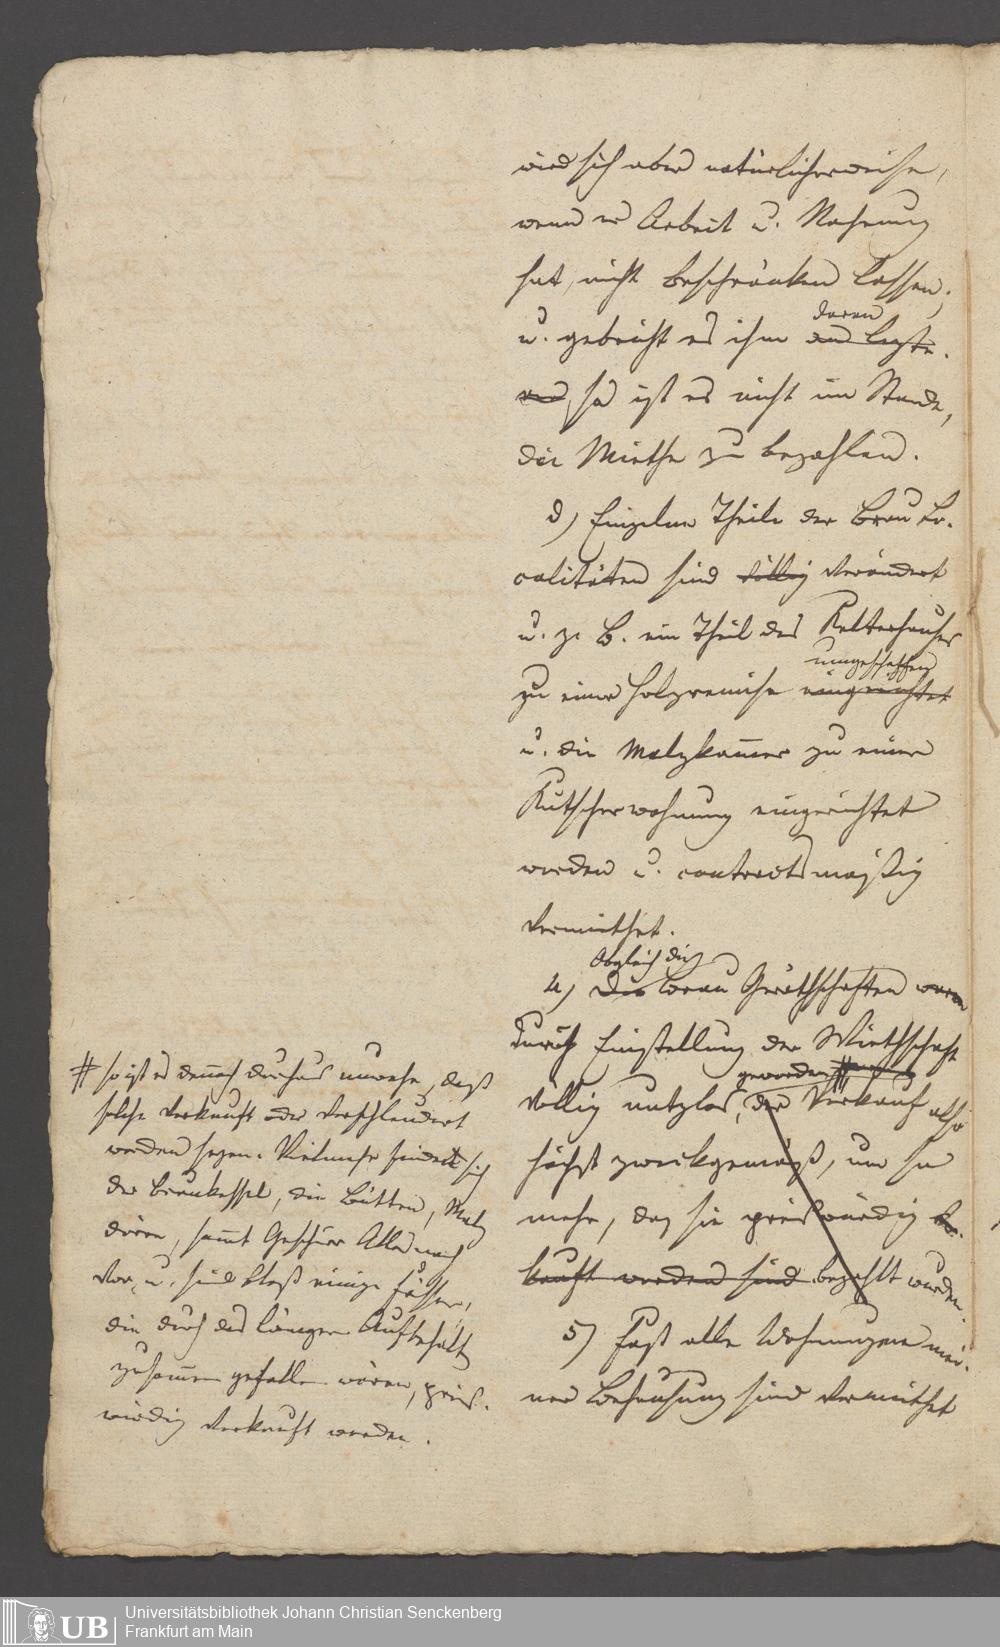 wird sich aber natürlicherweise,
wenn er Arbeit u. Nahrung
hat, nicht beschränken lassen;
daran
u. gebricht es ihm an letzte-
rer, so ist er nicht im Stande,
die Miethe zu bezahlen.
d) Einzelne Theile der Brau Lo-
calitäten sind völlig verändert
u. z. B. ein Theil des Kelterhauses
umgeschaffen
zu einer Holzremise eingerichtet
u. die Malzkam̅er zu einer
Kutscherwohnung eingerichtet
worden u. contractsmäßig
vermiethet.
Obgleich die
4) Die Brau Geräthschaften waren
durch Einstellung der Wirthschaft
geworden #
völlig nutzlos, der Verkauf also
höchst zweckgemäß, um so
mehr, da sie preiswürdig ver-
kauft worden sind bezahlt wurden.
5) Fast alle Wohnungen mei-
ner Behausung sind vermiethet
# so ist es den̅och durchaus unwahr, daß
solche verkauft oder verschleudert
worden seyen. Vielmehr findet sich
der Braukessel, die Bütten, Malz
dörre, sammt Geschirr Alles noch
vor, u. sind bloß einige Fässer,
die durch das längere Aufbehalten
zusam̅en gefallen wären, preis-
würdig verkauft worden.
Universitätsbibliothek Johann Christian Senckenberg
Frankfurt am Main
UB